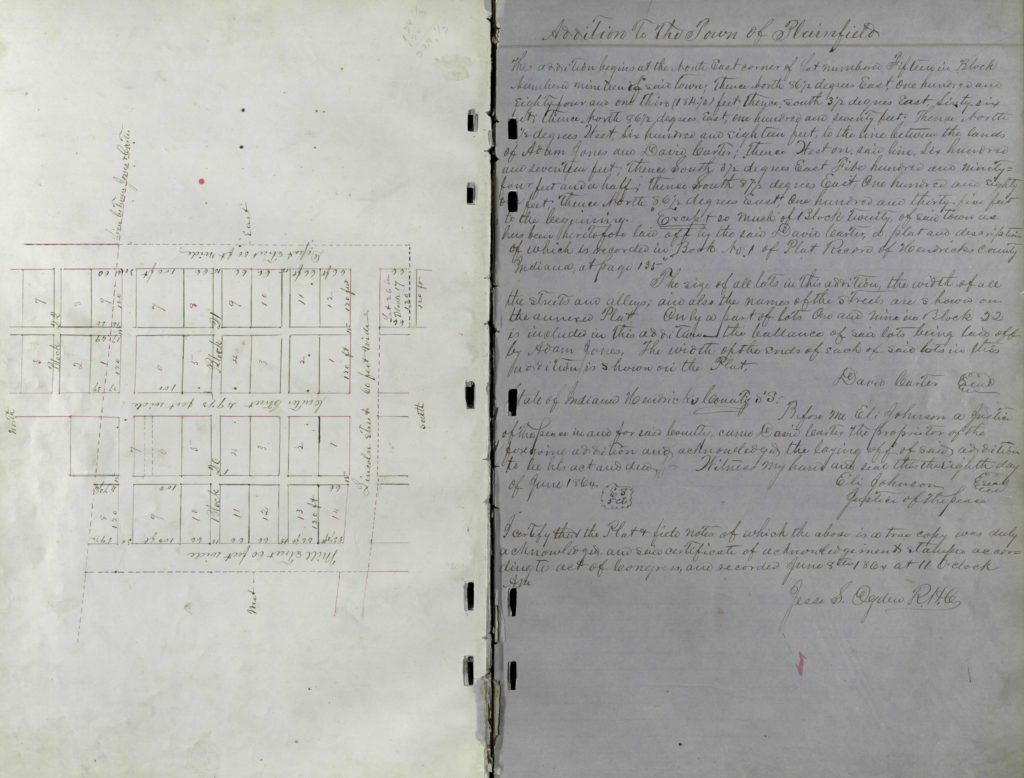 Addition To The Town of Plainfield
This addition begins at the North East corner of lot numbered Fifteen in Block
Numbered nineteen of said town; Thence North 86½ degrees East, One hundred and
Eighty four and one third (184⅓) feet thence South 3½ degrees East, Sixty six
feet; thence North 86½ degrees East, one hundred and seventy feet; Thence North
3½ degrees West Six hundred and eighteen feet, to the line between the lands
of Adam Jones and David Carter; thence West on said line, Six hundred
and seventeen feet; Thence South 3½ degrees East Five hundred and ninty=
four feet and a half; thense South 87½ degrees East, One hundred and eighty
feet; Thence North 86½ degrees East One hundred and thirty-five feet
to the beginning. "Except so much of Block Twenty, of said town as
has been heretofore laid off by the said David Carter, a plat and description
of which is recorded in Book No. 1 of Plat Record of Hendricks County
Indiana, at page 135"
The size of all lots in this addition, the width of all
the streets and alleys; and also the names of the streets are shown on
the annexed Plat. Only a part of lots One and nine in Block 22
is included in this addition the ballance of said lots being laid off
by Adam Jones. The width of the ends of each of said lots in this
addition is shown on the Plat.
David Carter Seal
State of Indiana Hendricks County SS.
Before Me Eli Johnson a Justice
of the peace in and for said County, came David Carter the proprietor of the
foregoing addition and acknowledged the laying off of said addition
to be his act and deed. Witness my hand and seal this the eighth day
of June 1864.
Eli Johnson Seal
Justice of the peace
I certify that the Plat & field notes of which the above is a true copy was duly
acknowledged and said certificate of acknowledgement stamped accor-
ding to act of Congress, and recorded June 8th 1864 at 11 O'clock
Am
Jesse S. Ogden R.H.C.
Line between Jones & Carter
East
60 feet wide
Block 22
Block 21
Center Street 49½ feet wide
North
South
Lincoln Street 60 feet wide
Block 20
Mill Street 60 feet wide
West